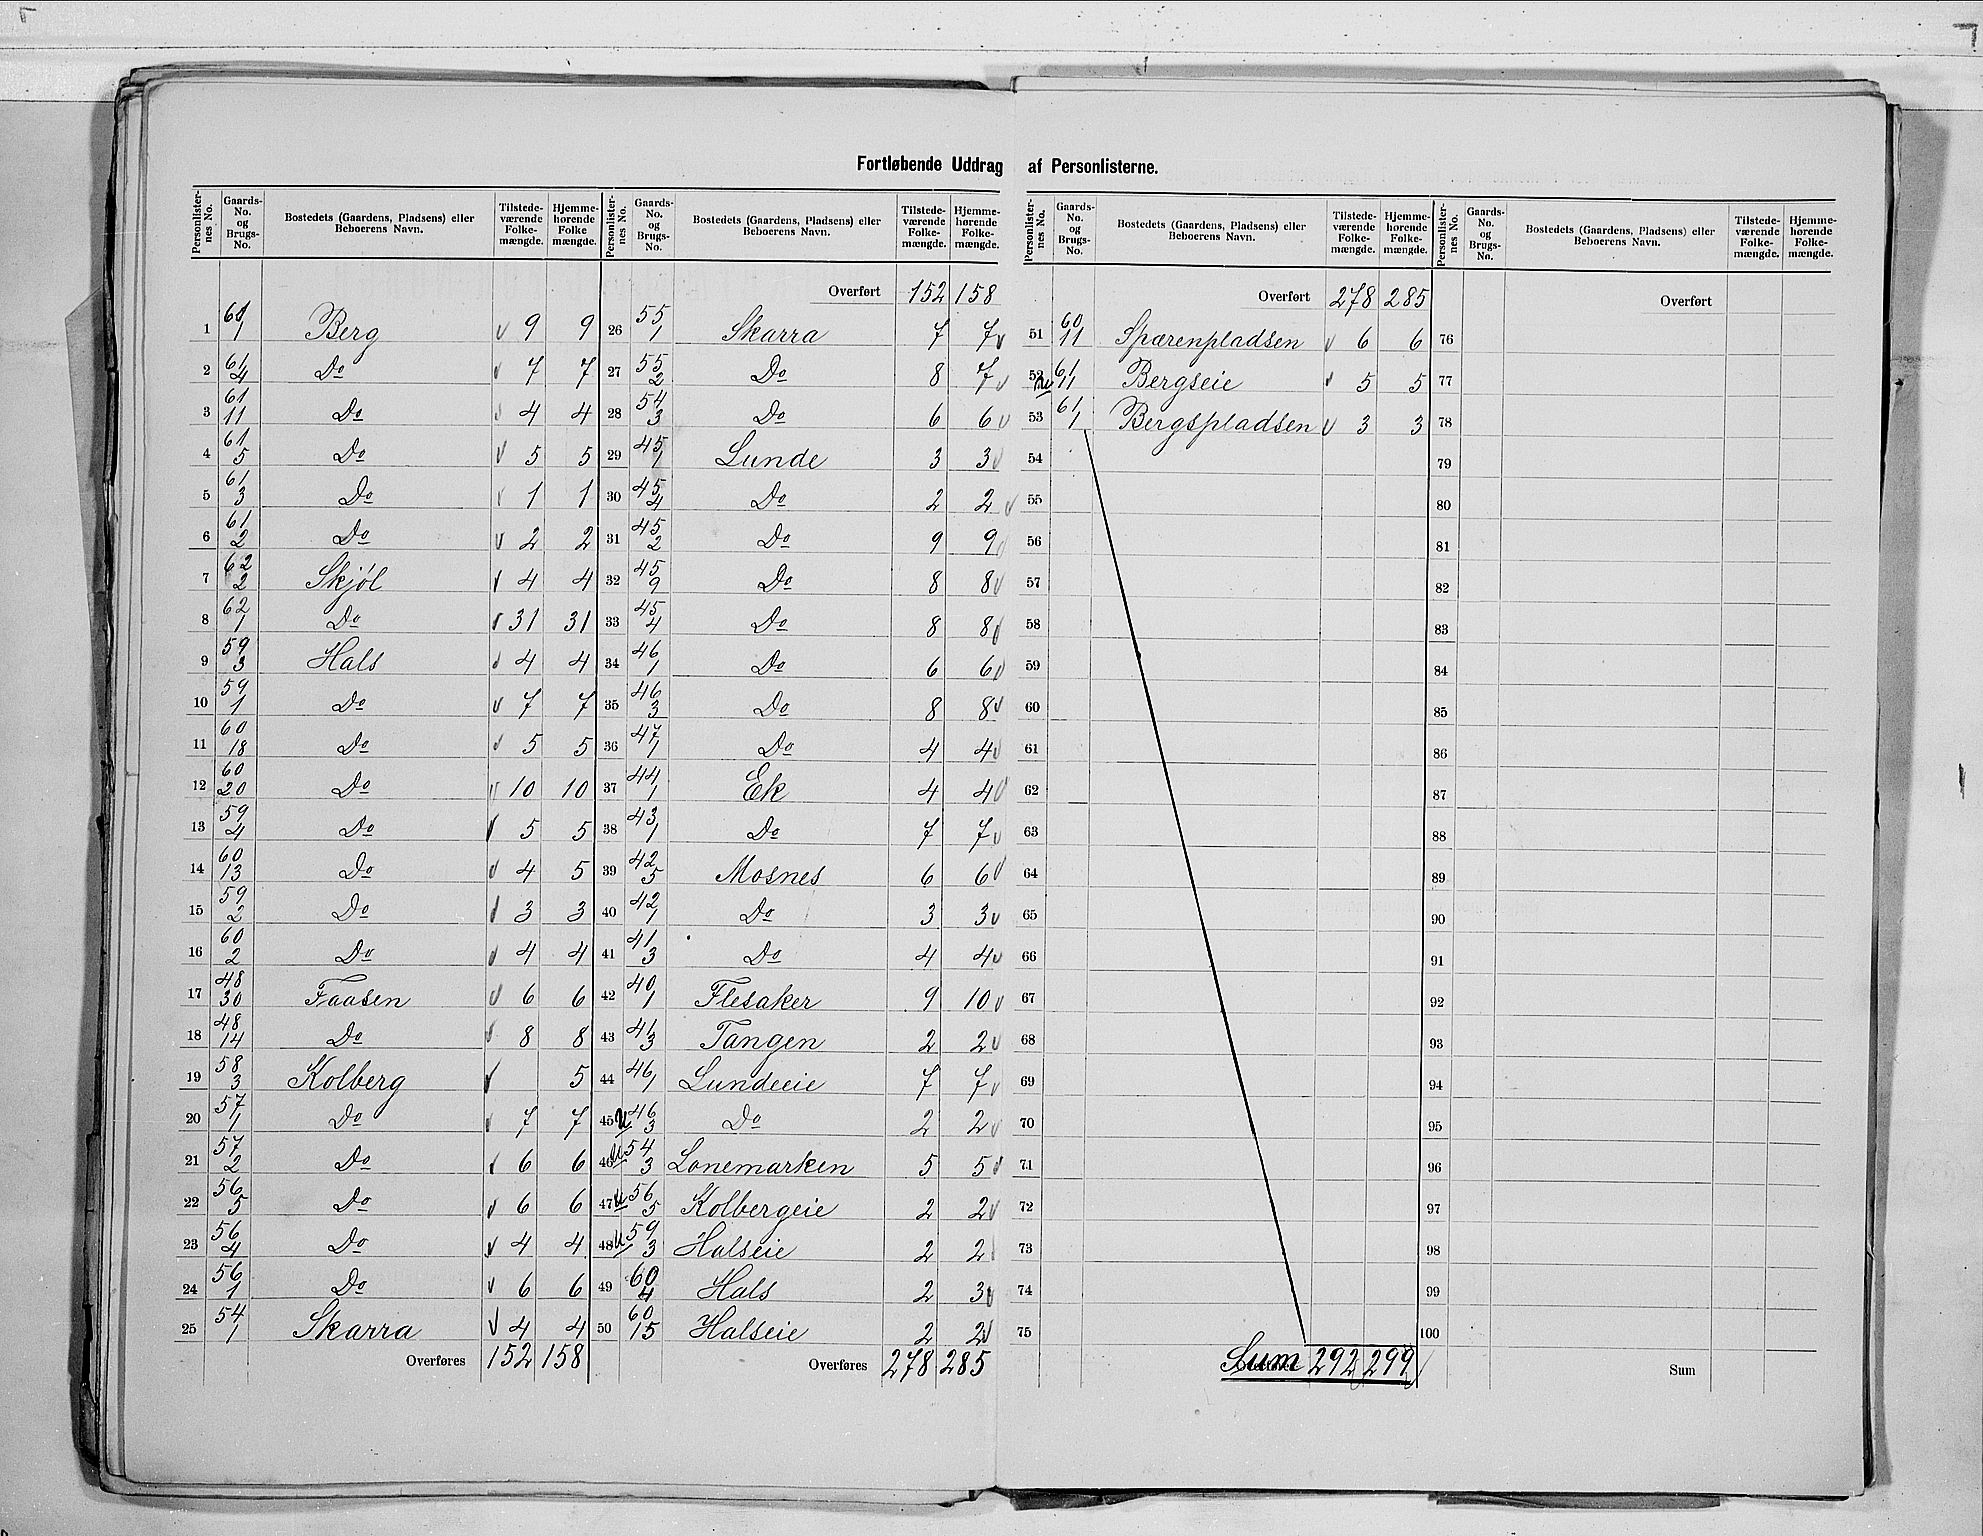 Fortløbende Uddrag af Personlisterne.
Personlisternes No. | Gaards-No. og Brugs-No. | Bostedets (Gaardens, Pladsens) eller Beboerens Navn. | Tilstedeværende Folkemængde. | Hjemmehørende Folkemængde.
1 | 61/1 | Berg | 9 | 9
2 | 61/4 | Do | 7 | 7
3 | 61/11 | Do | 4 | 4
4 | 61/5 | Do | 5 | 5
5 | 61/3 | Do | 1 | 1
6 | 61/2 | Do | 2 | 2
7 | 62/2 | Skjøl | 4 | 4
8 | 62/1 | Do | 31 | 31
9 | 59/3 | Hals | 4 | 4
10 | 59/1 | Do | 7 | 7
11 | 60/18 | Do | 5 | 5
12 | 60/20 | Do | 10 | 10
13 | 59/4 | Do | 5 | 5
14 | 60/13 | Do | 4 | 5
15 | 59/2 | Do | 3 | 3
16 | 60/2 | Do | 4 | 4
17 | 48/30 | Faasen | 6 | 6
18 | 48/14 | Do | 8 | 8
19 | 58/3 | Kolberg | | 5
20 | 57/1 | Do | 7 | 7
21 | 57/2 | Do | 6 | 6
22 | 56/5 | Do | 6 | 6
23 | 56/4 | Do | 4 | 4
24 | 56/1 | Do | 6 | 6
25 | 54/1 | Skarra | 4 | 4
Overføres | 152 | 158
Personlisternes No. | Gaards-No. og Brugs-No. | Bostedets (Gaardens, Pladsens) eller Beboerens Navn. | Tilstedeværende Folkemængde. | Hjemmehørende Folkemængde.
Overført | 152 | 158
26 | 55/1 | Skarra | 7 | 7
27 | 55/2 | Do | 8 | 7
28 | 54/3 | Do | 6 | 6
29 | 45/1 | Lunde | 3 | 3
30 | 45/4 | Do | 2 | 2
31 | 45/2 | Do | 9 | 9
32 | 45/9 | Do | 8 | 8
33 | 45/4 | Do | 8 | 8
34 | 46/1 | Do | 6 | 6
35 | 46/3 | Do | 8 | 8
36 | 47/1 | Do | 4 | 4
37 | 44/1 | Ek | 4 | 4
38 | 43/1 | Do | 7 | 7
39 | 42/5 | Mosnes | 6 | 6
40 | 42/1 | Do | 3 | 3
41 | 41/3 | Do | 4 | 4
42 | 40/1 | Flesaker | 9 | 10
43 | 41/3 | Tangen | 2 | 2
44 | 46/1 | Lundeeie | 7 | 7
45 | u 46/3 | Do | 2 | 2
46 | u 54/3 | Lonemarken | 5 | 5
47 | u 56/5 | Kolbergeie | 2 | 2
48 | u 59/3 | Halseie | 2 | 2
49 | 60/4 | Hals | 2 | 3
50 | 60/15 | Halseie | 2 | 2
Overføres | 278 | 285
Personlisternes No. | Gaards-No. og Brugs-No. | Bostedets (Gaardens, Pladsens) eller Beboerens Navn. | Tilstedeværende Folkemængde. | Hjemmehørende Folkemængde.
Overført | 278 | 285
51 | 60/11 | Spærenpladsen | 6 | 6
52 | 61/11 | Bergseie | 5 | 5
53 | 61/1 | Bergspladsen | 3 | 3
54
55
56
57
58
59
60
61
62
63
64
65
66
67
68
69
70
71
72
73
74
75
Sum | 292 | 299
Personlisternes No. | Gaards-No. og Brugs-No. | Bostedets (Gaardens, Pladsens) eller Beboerens Navn. | Tilstedeværende Folkemængde. | Hjemmehørende Folkemængde.
Overført
76
77
78
79
80
81
82
83
84
85
86
87
88
89
90
91
92
93
94
95
96
97
98
99
100
Sum